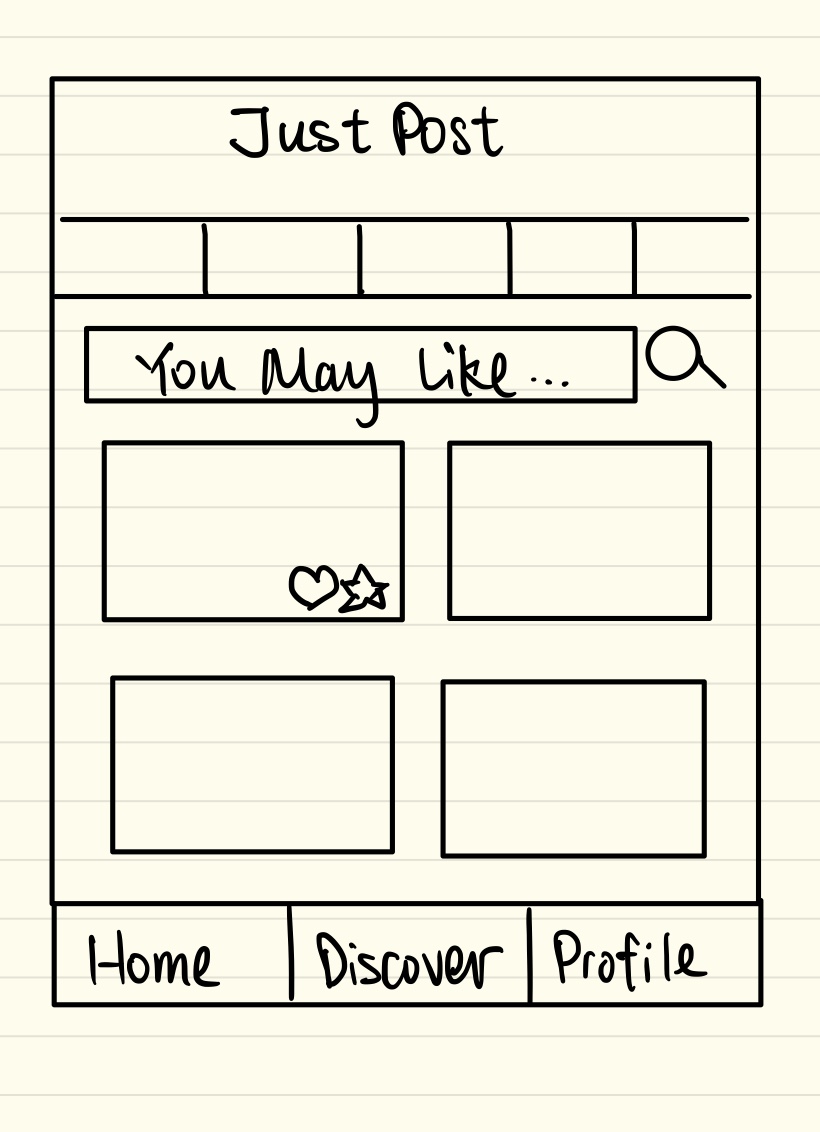 Just Post
You May Like...
Home
Discover
Profile